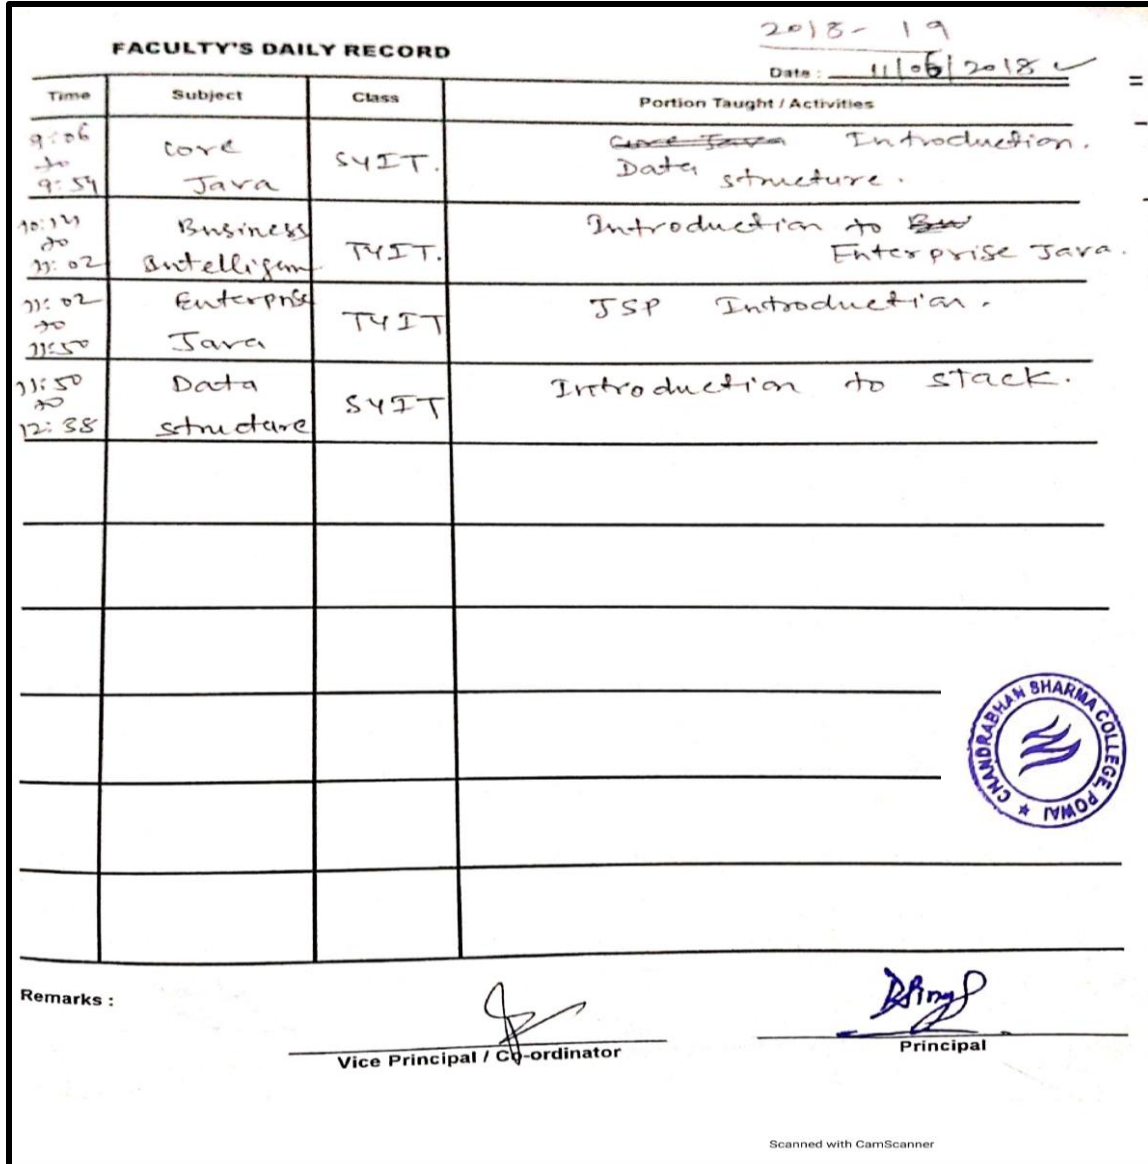 2018-19
FACULTY'S DAILY RECORD
Date : 11/06/2018
Time Subject Class Portion Taught / Activities
9:06 to 9:54
Core Java
SYIT.
Core Java Introduction.
Data structure.
10:14 to 11:02
Business
TYIT.
Introduction to
Enterprise Java.
11:02 to 11:50
Enterprise Java
TYIT
JSP Introduction.
11:50 to 12:38
Data structure
SYIT
Introduction to stack.
CHANDRABHAN SHARMA COLLEGE, POWAI
Remarks :
Vice Principal / Co-ordinator
Principal
Scanned with CamScanner